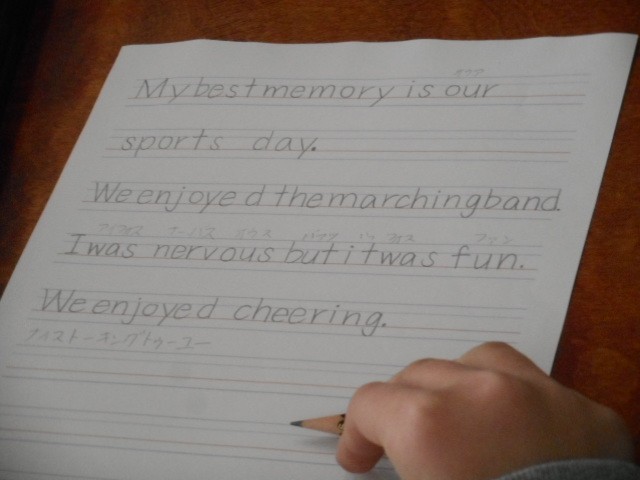 My best memory is our
sports day.
We enjoyed the marching band.
I was nervous but it was fun.
We enjoyed cheering.